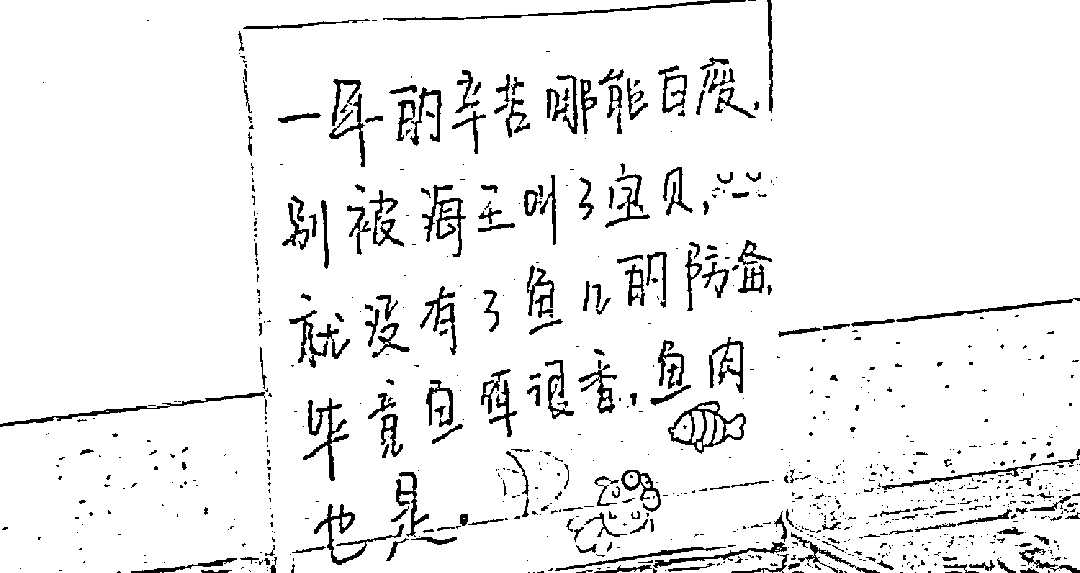 一年的辛苦哪能白废.
别被海王叫了宝贝,
就没有了鱼儿的防备,
毕竟鱼饵很香,鱼肉
也是.